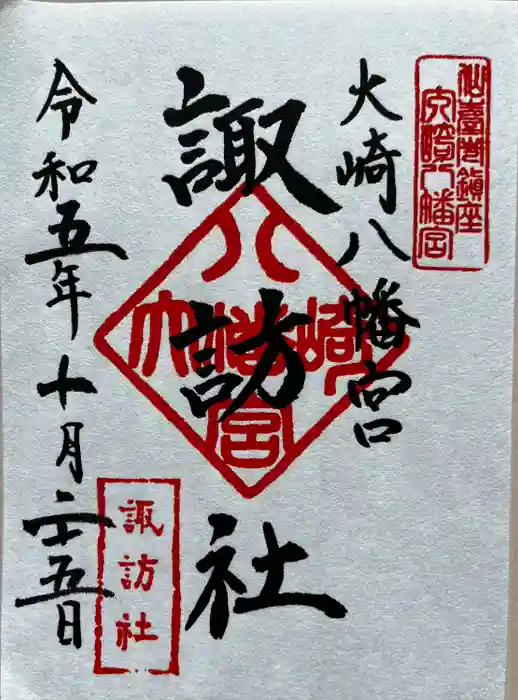 仙臺岩鎮座
大崎八幡宮
大崎八幡宮
諏訪社
八
大幡崎
宮
令和五年十月二十五日
諏訪社